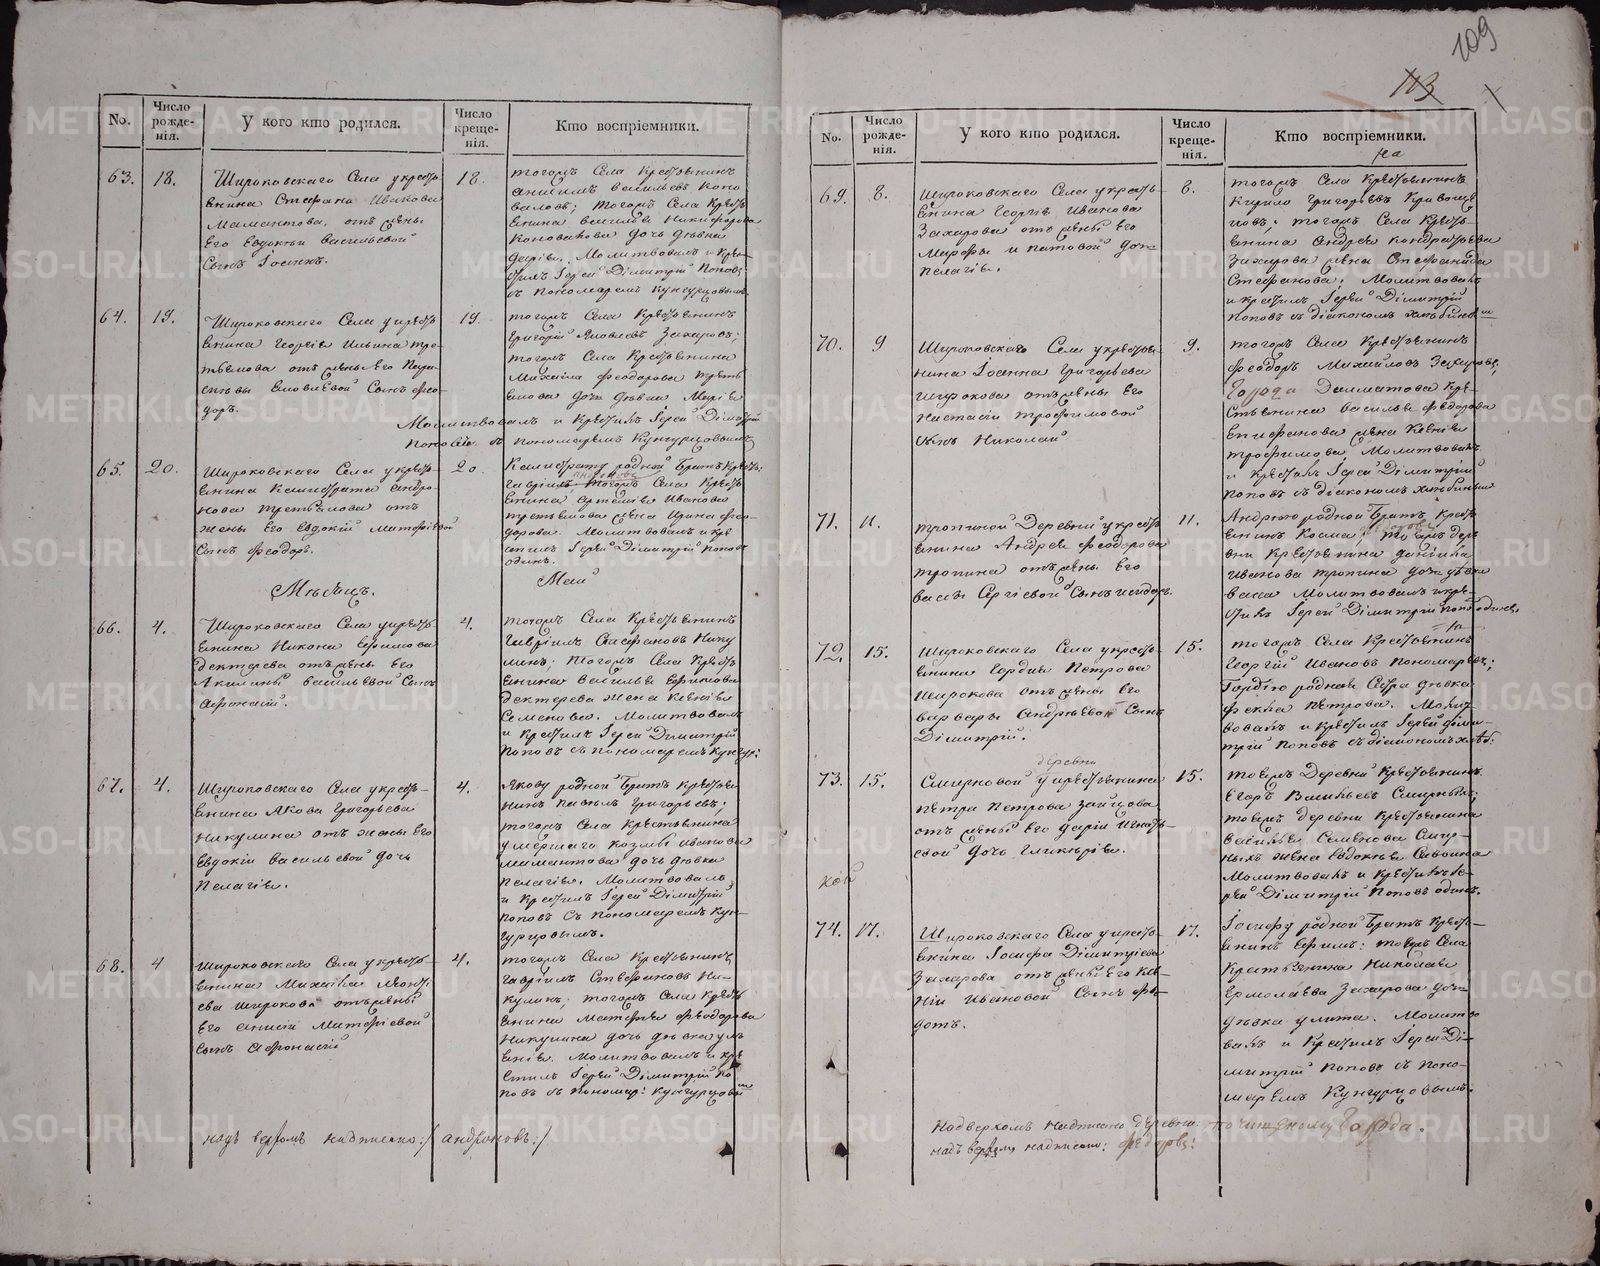 109
113
No.
Число рожде-нія.
У кого кто родился.
Число креще-нія.
Кто воспріемники.
63.
18.
Широковскаго Села у кресть
янина Стефана Ивакова
Мамонтова, отъ жены
Его Евдокіи Васильевой
Сынъ
18.
тогожъ Села Крестьянинъ
Васильевъ Коно
валовъ; тогожъ Села Кресть
янина Василья Никифорова
Коновалова дочь дѣвка
Дарія. Молитвовалъ и Кре
стилъ Іерей Дімитрій Поповъ
съ пономаремъ Кунгурцовымъ
64.
19.
Широковскаго Села у кресть
янина Георгія Ильина Тре
тьякова отъ жены Его Пара
сковьи Сынъ Фео
доръ.
19.
тогожъ Села Крестьянинъ
Григорій Яковлевъ Захаровъ;
тогожъ Села Крестьянина
Михаила Феодорова Треть
якова дочь дѣвка Марія
Молитвовалъ и Крестилъ Іерей Дімитрій
Поповъ съ пономаремъ Кунгурцовымъ
65.
20.
Широковскаго Села у кресть
янина Калистрата Андро
нова Третьякова отъ
жены Его Евдокіи Матфіевой
Сынъ Феодоръ.
20.
Калистрату родной Братъ
Гавріилъ тогожъ Села Кресть
янина Артемія Иванова
Третьякова жена Ирина Фео
дорова. Молитвовалъ и кре
стилъ Іерей Дімитрій Поповъ
одинъ.
Мѣсяцъ.
Маій
66.
4.
Широковскаго Села у кресть
янина Никона Ефимова
Дектерева отъ жены Его
Акилины Васильевой Сынъ
Афонасій.
4.
тогожъ Села Крестьянинъ
Гавріилъ Стефановъ Нику
линъ; тогожъ Села Кресть
янина Василья Ефимова
Дектерева жена Ксенія
Семенова. Молитвовалъ
и Крестилъ Іерей Дімитрій
Поповъ съ пономаремъ Кунгур:
67.
4.
Широковскаго Села у кресть
янина Якова Григорьева
Никулина отъ жены Его
Евдокіи Васильевой дочь
Пелагія.
4.
Якову родной Братъ Крестья
нинъ Павелъ Григорьевъ;
тогожъ Села Крестьянина
умершаго Козмы Иванова
Мамонтова дочь дѣвка
Пелагія. Молитвовалъ
и Крестилъ Іерей Дімитрій
Поповъ Съ пономаремъ Кун
гурцовымъ.
68.
4
Широковскаго Села у кресть
янина Михаила Леонть
ева Широкова отъ жены
Его Анисіи Матфіевой
Сынъ Афонасій
4.
тогожъ Села Крестьянинъ
Гавріилъ Стефановъ Ни
кулинъ; тогожъ Села Кресть
янина Матфея Феодорова
Никулина дочь дѣвка Уль
янія. Молитвовалъ и кре
стилъ Іерей Дімитрій По
повъ съ Пономар: Кунгурцовы
надъ верхомъ надписано: / андроновъ: /
No.
Число рожде-нія.
У кого кто родился.
Число креще-нія.
Кто воспріемники.
на
69.
8.
Широковскаго Села у кресть
янина Георгія Иванова
Захарова отъ жены Его
Марфы Ипатовой дочь
Пелагія.
8.
тогожъ Села Крестьянинъ
Кирило Григорьевъ Кривоще
ковъ; тогожъ Села Кресть
янина Андрея Кондратьева
Захарова жена Стефанида
Стефанова. Молитвовалъ
и крестилъ Іерей Дімитрій
Поповъ съ діакономъ
70.
9
Широковскаго Села у крестья
нина Іоанна Григорьева
Широкова отъ жены Его
Настасіи Трофимовой
сынъ Николай
9.
тогожъ Села Крестьянинъ
Феодоръ Михайловъ Захаровъ;
Города Далматова кре
стьянина Василья Федорова
Епифанова жена Ксенія
Трофимова, Молитвовалъ
и Крестилъ Іерей Дімитрій
Поповъ съ діакономъ
71.
11.
Тропиной Деревни у кресть
янина Андрея Феодорова
Тропина отъ жены Его
Вассы Сергіевой Сынъ Исидоръ.
11.
Андрею родной Братъ Кресть
янинъ Косма, тоежъ дере
вни Крестьянина Даніила
Иванова Тропина дочь дѣвка
Васса Молитвовалъ и кре
стилъ Іерей Дімитрій Поповъ одинъ.
72.
15.
Широковскаго Села у кресть
янина Гордія Петрова
Широкова отъ жены Его
Варвары Андреевой Сынъ
Дімитрій.
15.
тогожъ Села Крестьянинъ
Георгій Ивановъ Пономаревъ;
Гордію родная Сестра дѣвка
Фекла Петрова. Молит
вовалъ и Крестилъ Іерей Дими
трій Поповъ съ діакономъ
73.
15.
деревни
Смирновой у крестьянина
Петра Петрова Зайцова
отъ жены Его Даріи Игнать
евой дочь Гликерія.
15.
тоежъ Деревни Крестьянинъ
Егоръ Васильевъ Смирныхъ;
тоежъ деревни Крестьянина
Василья Семенова Смир
ныхъ жена Евдокія Савина
Молитвовалъ и Крестилъ Іе
рей Дімитрій Поповъ одинъ.
74.
17.
Широковскаго Села у кресть
янина Іосифа Дімитріева
Захарова, отъ жены Его Ксе
ніи Ивановой Сынъ Фе
дотъ.
17.
Іосифу родной Братъ Кресть
янинъ Ефимъ: тогожъ Села
Крестьянина Николая
Ермолаева Захарова дочь
дѣвка Улита. Молитво
валъ и Крестилъ Іерей Ді
митрій Поповъ съ поно
маремъ Кунгурцовымъ.
Надверхомъ надписано деревни: по чищенному Города.
надъ верхомъ надписано: Федоровъ: